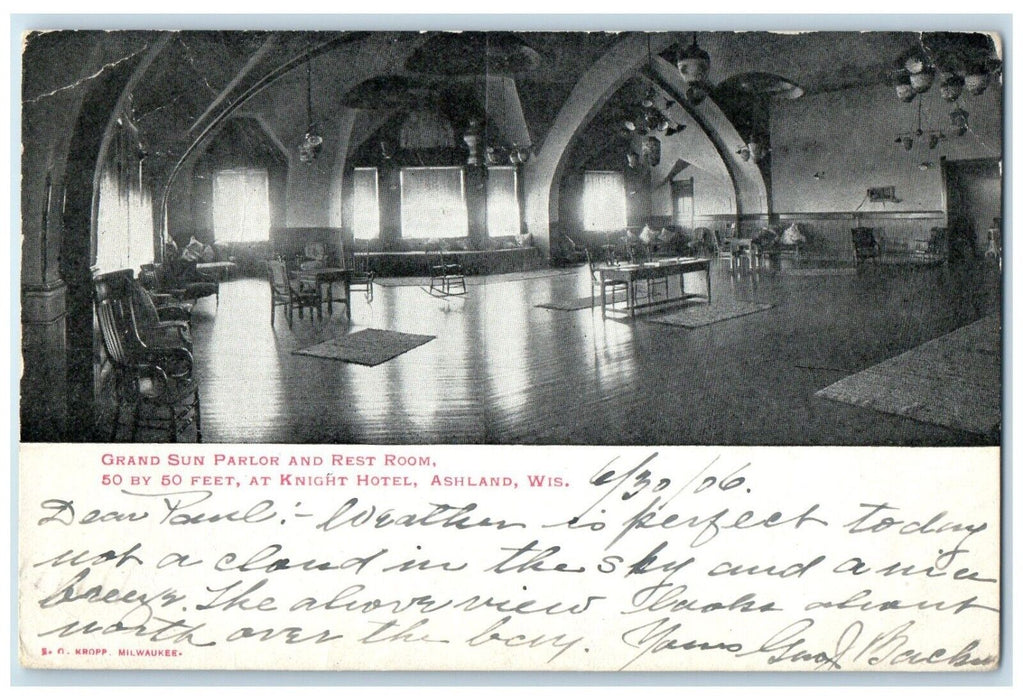 Grand Sun Parlor and Rest Room,
50 by 50 feet, at Knight Hotel, Ashland, Wis.
6/30/06.
Dear Paul:- Weather is perfect today
not a cloud in the sky and a nice
breeze. The above view looks about
north over the bay. Yours Geo J Backus
E. C. KROPP. MILWAUKEE.